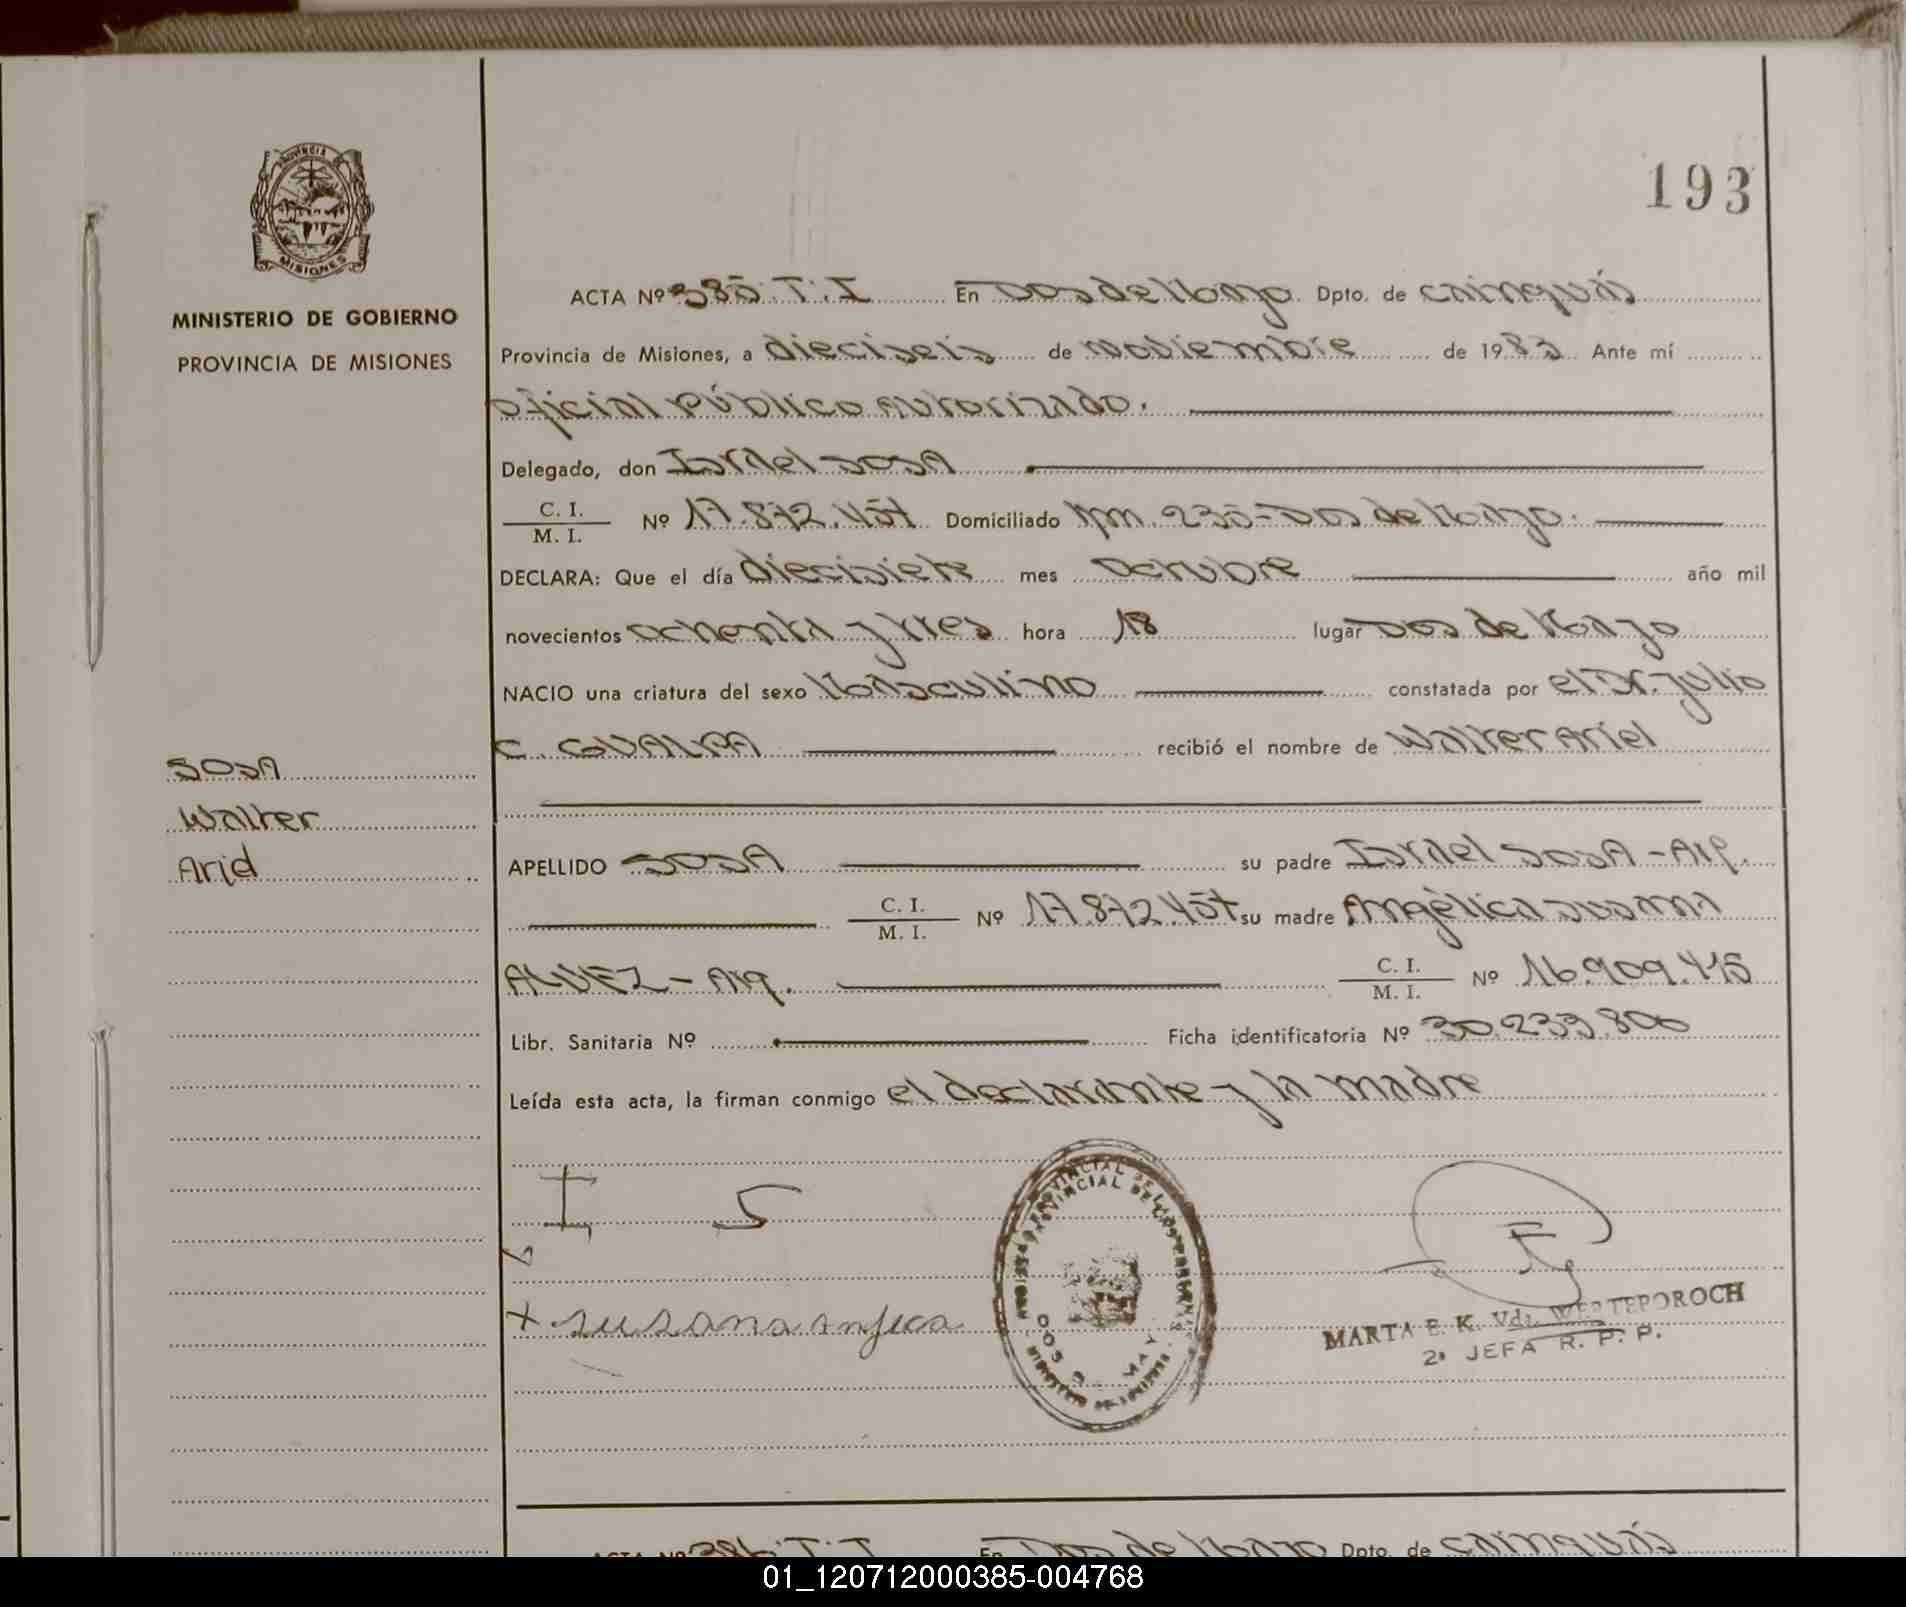 193
PROVINCIA DE
MISIONES
MINISTERIO DE GOBIERNO
PROVINCIA DE MISIONES
SOSA
Walter
Ariel
ACTA Nº 385. T. I En Dos de Mayo. Dpto. de Cainguás
Provincia de Misiones, a dieciseis de Nobiembre de 1983 Ante mí
Oficial Público Autorizado.
Delegado, don Israel SOSA
C. I.
M. I. Nº 17.872.457 Domiciliado Km. 235 - Dos de Mayo.
DECLARA: Que el día diecisiete mes Octubre año mil
novecientos Ochenta y tres hora 18 lugar Dos de Mayo
NACIO una criatura del sexo Masculino constatada por el Dr. Julio
C. GUALPA recibió el nombre de Walter Ariel
APELLIDO SOSA su padre Israel SOSA - Arg.
C. I.
M. I. Nº 17.872.457 su madre Angélica Susana
ALVEZ - Arg. C. I.
M. I. Nº 16.909.415
Libr. Sanitaria Nº Ficha identificatoria Nº 30.233.806
Leída esta acta, la firman conmigo el declarante y la madre
I S
+ susana anjeca
DOS D MAY
MARTA E. K. Vda. WERTEPOROCH
2ª JEFA R. P. P.
ACTA Nº 386. T. I En Dos de Mayo Dpto. de Cainguás
01_120712000385-004768